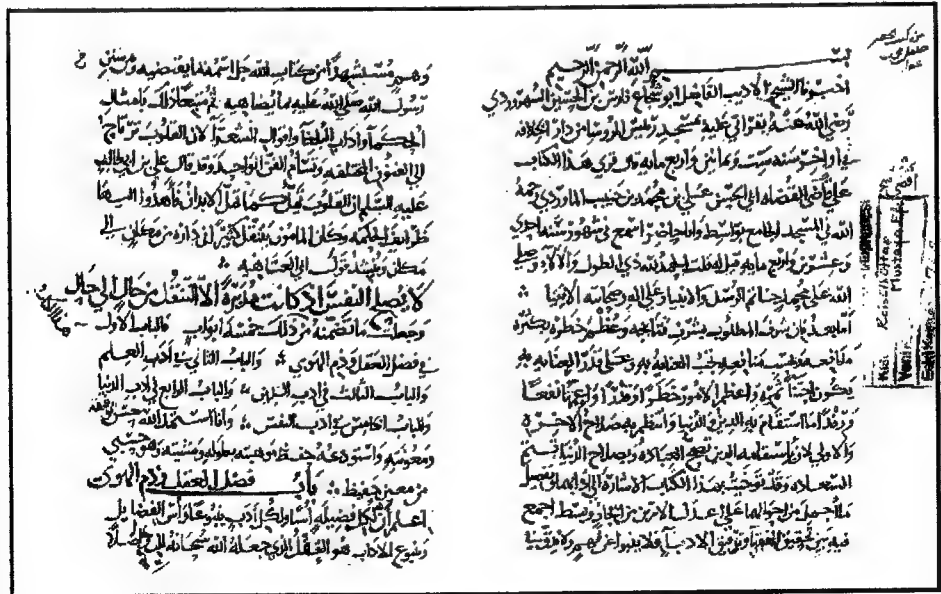 بسم الله الرحمن الرحيم
اخبرنا الشيخ الأديب الفاضل ابو شجاع فارس بن الحسين السهروردي
رضي الله عنه بقراتي عليه بمسجد رئيس الروسا من دار الخلافه
في اواخر سنه ست وثمانين واربع مايه قال قري هذا الكتاب
علي اقضي القضاه ابي الحسن علي بن محمد بن حبيب الماوردي رحمه
الله في المسجد الجامع بواسط وانا حاضر اسمع في شهور سنه احدي
وعشرين واربع مايه قيل له قلت الحمد لله ذي الطول والآلاء وصلي
الله علي محمد خاتم الرسل والانبيا وعلي اله وصحابته الاتقيا
أما بعد فان شرف المطلوب بشرف نتايجه وعظم خطره بكثره
منافعه وبحسب منافعه تجب العنايه به وعلي قدر العنايه به
يكون اجتنا ثمره واعظم الامور خطرا وقدرا واعمها نفعا
ورفدا ما استقام به الدين والدنيا وانتظم به صلاح الاخره
والاولي لأن باستقامه الدين تصح العباده وبصلاح الدنيا تتم
السعاده وقد توخيت بهذا الكتاب الاشاره الي ادابهما وتفصيل
ما أجمل من احوالهما علي اعدل الامرين من ايجاز وبسط اجمع
فيه بين تحقيق الفقها وترقيق الادبا فلا ينبوا عن فهم ولا يدق في
وهم مستشهدا من كتاب الله جل اسمه بما يقتضيه ومن سنن
رسول الله صلي الله عليه بما يضاهيه ثم متبعا ذلك بامثال
الحكما وآداب البلغا واقوال الشعرا لان القلوب ترتاح
الي الفنون المختلفه وتسأم الفن الواحد وقد قال علي بن ابي طالب
عليه السلم ان القلوب تمل كما تمل الابدان فأهدوا اليها
طرايف الحكمه وكان المامون يتنقل كثيرا في داره من مكان الي
مكان وينشد قول ابي العتاهيه
لا يصلح النفس اذ كانت مدبرة الا التنقل من حال الي حال
وجعلت ما تضمنه من ذلك خمسه ابواب فالباب الاول
في فضل العقل وذم الهوي والباب الثاني في ادب العلم
والباب الثالث في ادب الدين والباب الرابع في ادب الدنيا
والباب الخامس في ادب النفس وأنا استمد الله حسن توفيقه
ومعونته واستودعه حفظ موهبته بطوله ومشيته وهو حسبي
من معين وحفيظ
باب فضل العقل وذم الهوي
اعلم أن لكل فضيله أسا ولكل أدب ينبوعا وأس الفضايل
وينبوع الاداب هو العقل الذي جعله الله سبحانه للدين اصلا
Reisülküttap
Mustafa Ef.
Yeni
Eski Kayıt